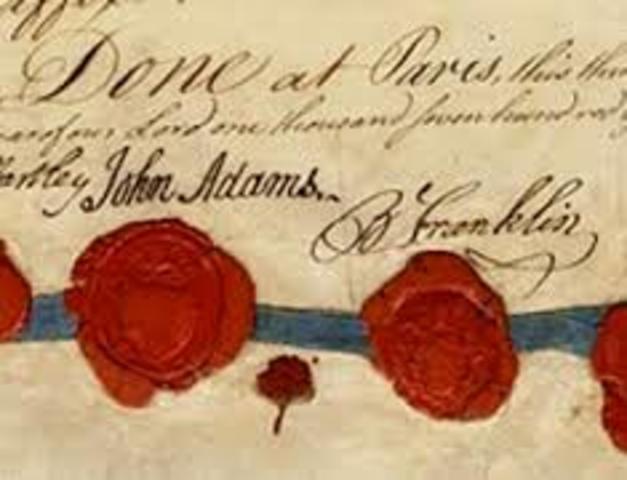 Done at Paris, this
of our Lord one thousand seven hundred
artley John Adams.
B Franklin